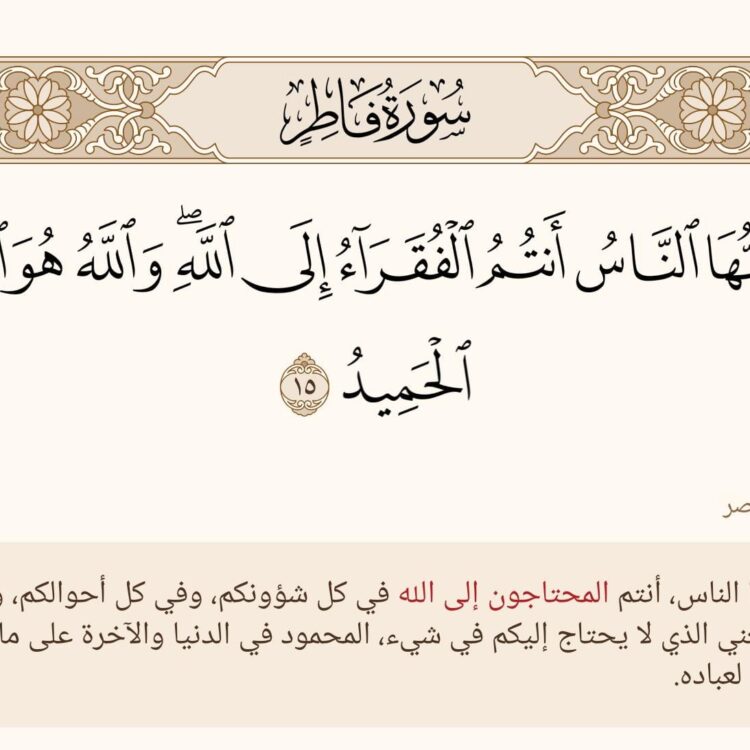 سُورَةُ فَاطِرٍ
ـُّهَا ٱلنَّاسُ أَنتُمُ ٱلْفُقَرَآءُ إِلَى ٱللَّهِۖ وَٱللَّهُ هُوَ ٱ
ٱلْحَمِيدُ ١٥
صر
الناس، أنتم المحتاجون إلى الله في كل شؤونكم، وفي كل أحوالكم، و
ني الذي لا يحتاج إليكم في شيء، المحمود في الدنيا والآخرة على ما
لعباده.